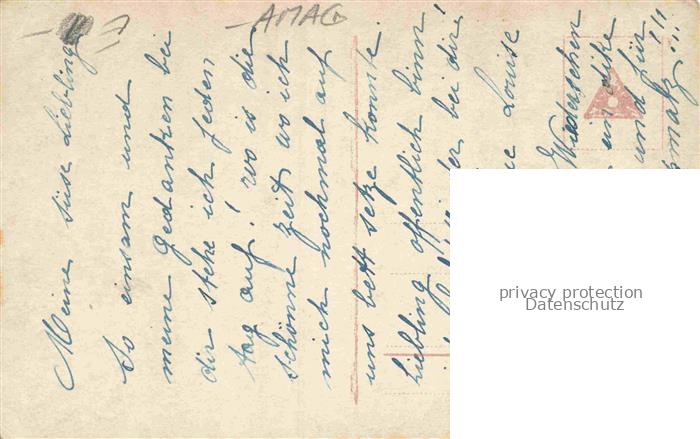 AMAG
Meine süse Liebling
So einsam und
meine gedanken bei
dir stehe ich jeden
tag auf! wo is die
schönne zeit wo ich
mich nochmal auf
uns bett setze konnte.
Liebling offentlich binn
bei dir!
Louise
Wiedersehen
und für
privacy protection
Datenschutz